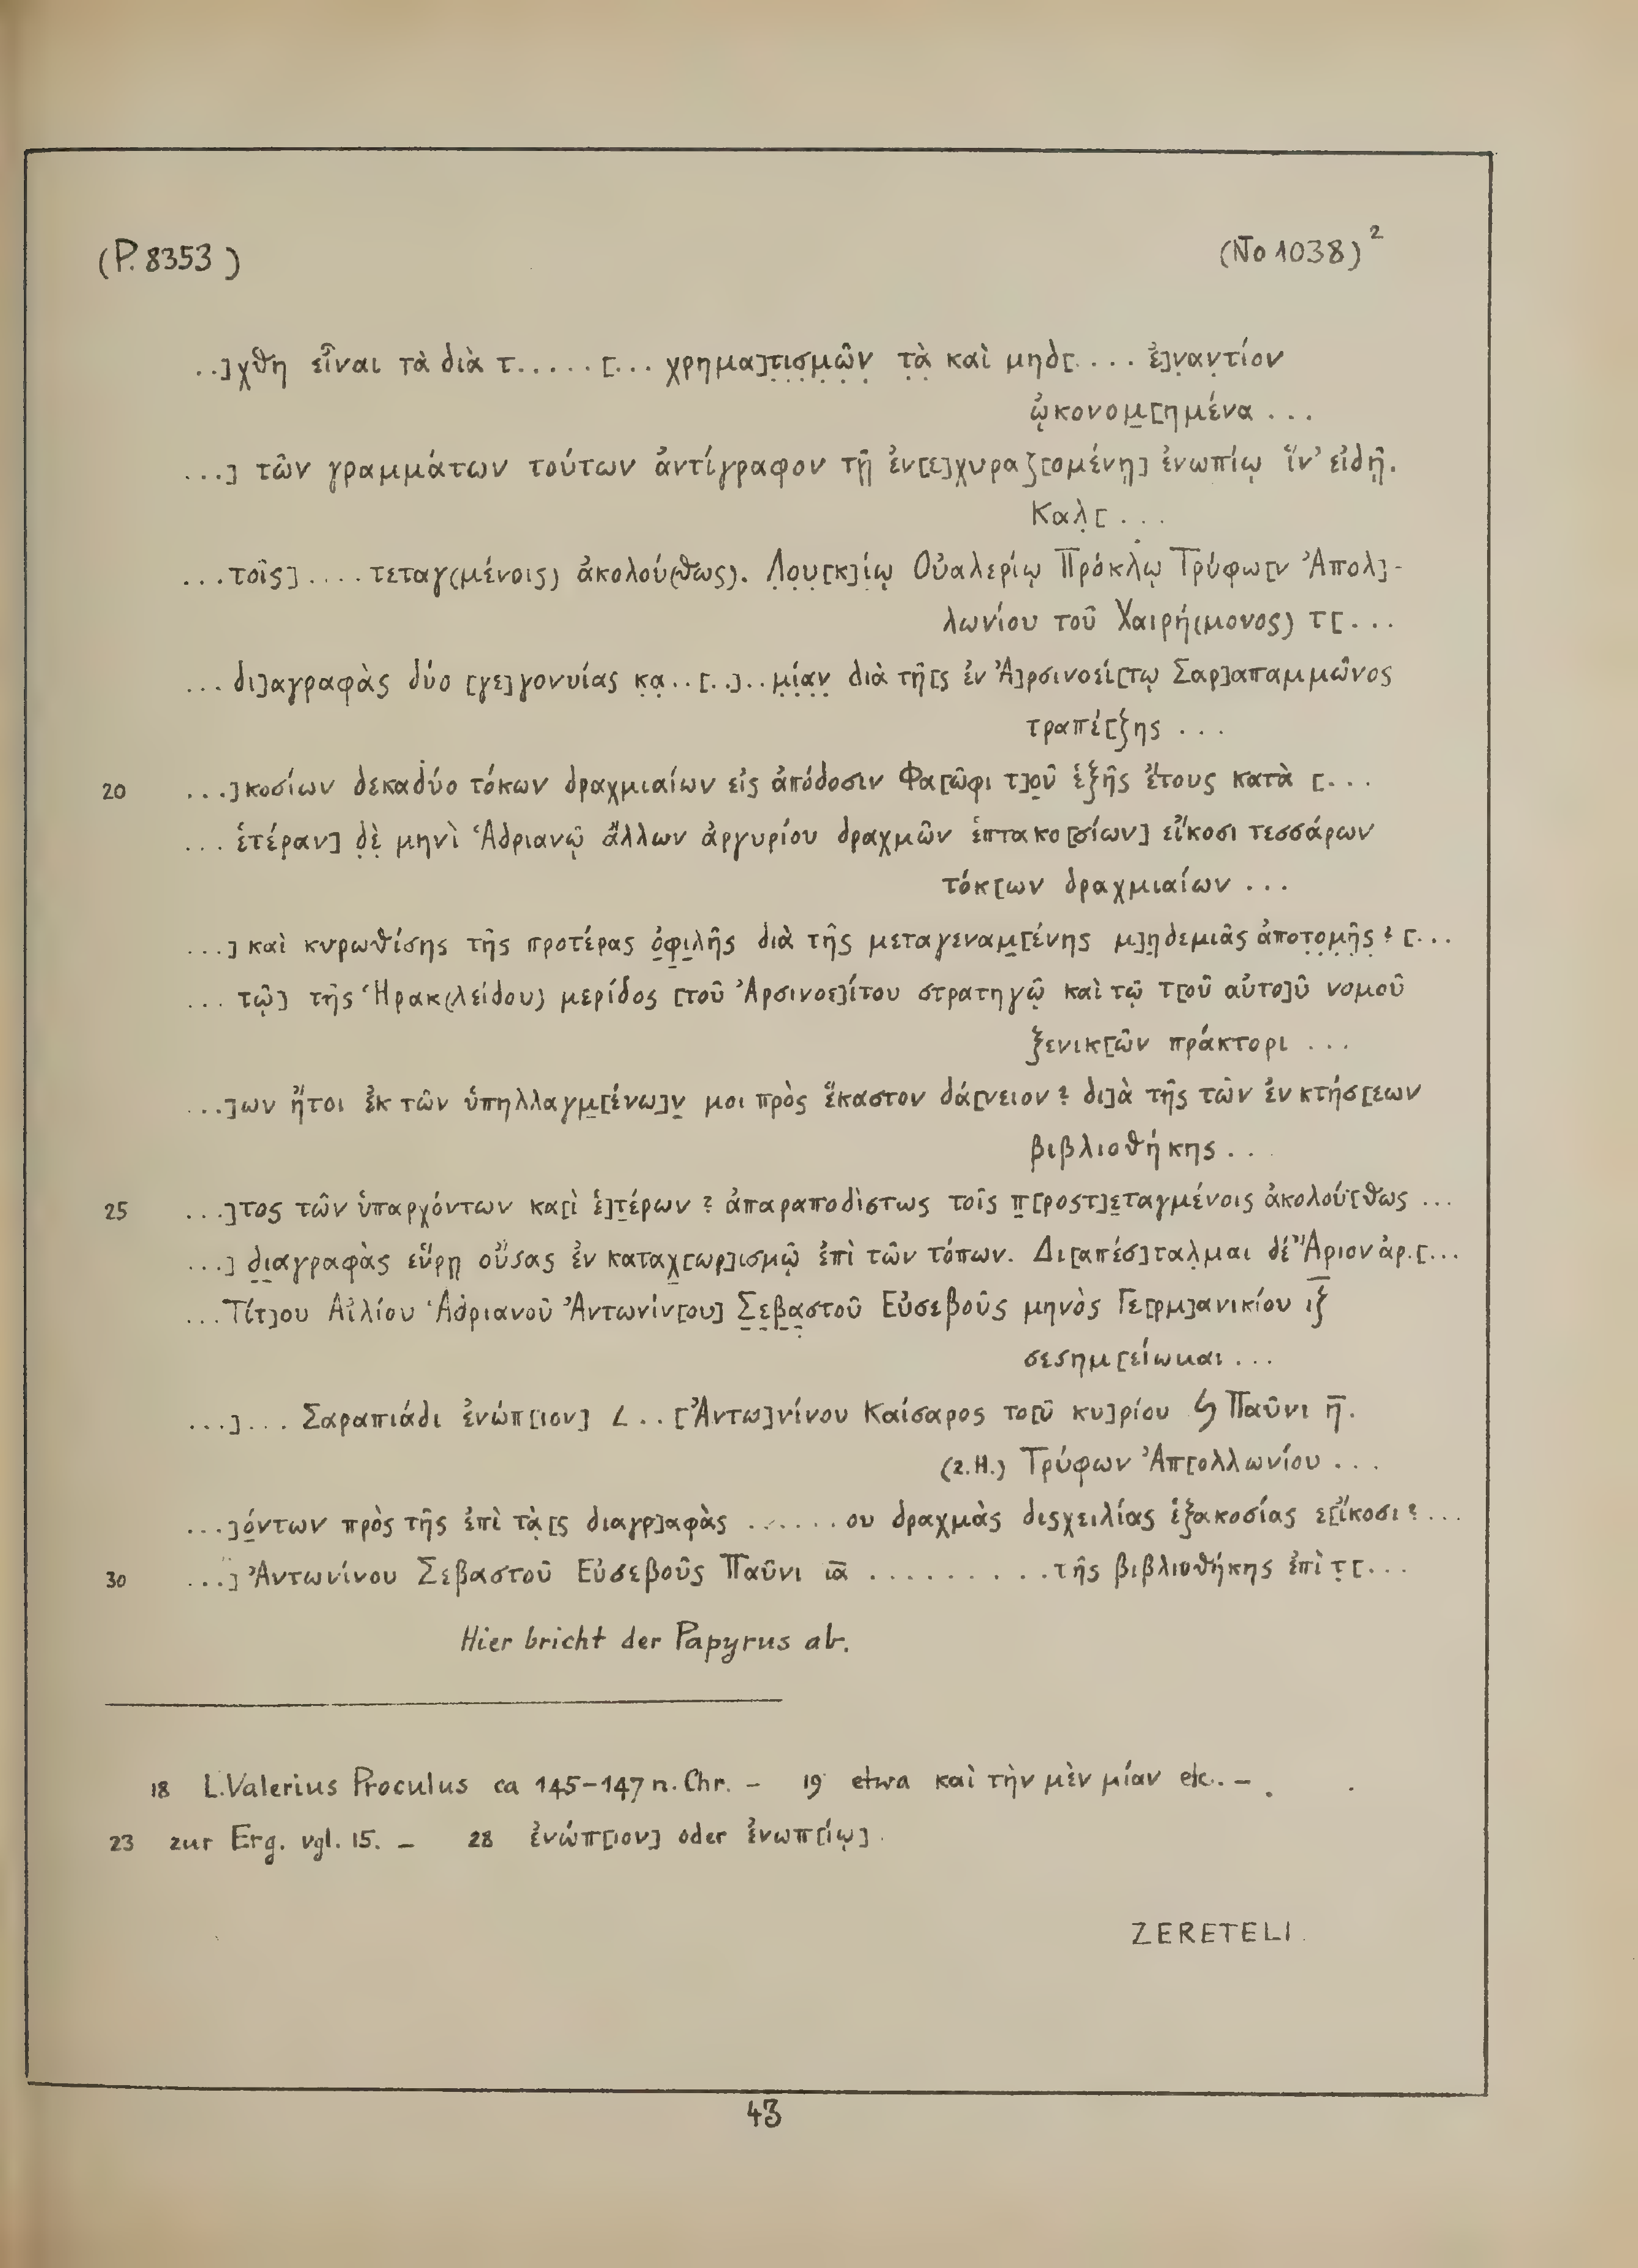 (P. 8353) (No 1038)²
..]χθη εἶναι τὰ διὰ τ.....[... χρημα]τ̣ι̣σ̣μ̣ῶ̣ν̣ τ̣ὰ̣ καὶ μηδ[.... ἐ]ν̣αν̣τίον
ᾠκονομ̣[ημένα ...
...] τῶν γραμμάτων τούτων ἀντίγραφον τῇ ἐν[ε]χυραζ[ομένῃ] ἐνωπίῳ ἵν’ εἰδῇ.
Καλ̣[ ...
...τοῖς].... τεταγ(μένοις) ἀκολού(θως). Λ̣ο̣υ̣[κ]ίῳ Οὐαλερίῳ Πρόκλῳ Τρύφω[ν Ἀπολ]-
λωνίου τοῦ Χαιρή(μονος) τ[...
... δι]αγραφὰς δύο [γε]γονυίας κ̣α̣..[..]..μ̣ί̣α̣ν̣ διὰ τῆ[ς ἐν Ἀ]ρσινοεί[τῳ Σαρ]απαμμῶνος
τραπέ[ζης ...
20 ...]κοσίων δεκαδύο τόκων δραχμιαίων εἰς ἀπόδοσιν Φα[ῶφι τ]ο̣ῦ ἑξῆς ἔτους κατὰ [...
... ἑτέραν] δ̣ὲ̣ μηνὶ Ἁδριανῷ ἄλλων ἀργυρίου δραχμῶν ἑπτακο[σίων] εἴκοσι τεσσάρων
τόκ[ων δραχμιαίων ...
...] καὶ κυρωθίσης τῆς προτέρας ὀ̣φ̣ι̣λῆς διὰ τῆς μεταγεναμ̣[ένης μ]η̣δεμιᾶς ἀποτ̣ο̣μ̣ῆ̣ς̣? [...
... τῷ] τῆς Ἡρακ(λείδου) μερίδος [τοῦ Ἀρσινοε]ίτου στρατηγῷ καὶ τῷ τ[οῦ αὐτο]ῦ νομοῦ
ξενικ[ῶν πράκτορι ...
...]ων ἤτοι ἐκ τῶν ὑπηλλαγμ̣[ένω]ν̣ μοι πρὸς ἕκαστον δά[νειον? δι]ὰ τῆς τῶν ἐν κτήσ[εων
βιβλιοθήκης ..
25 ...]τος τῶν ὑπαρχόντων κα[ὶ ἑ]τ̣έρων? ἀπαραποδίστως τοῖς π̣[ροστ]ε̣ταγμένοις ἀκολού[θως ...
...] δ̣ι̣αγραφὰς εὕρῃ οὔσας ἐν καταχ̣[ωρ]ισμῷ ἐπὶ τῶν τόπων. Δι[απέσ]ταλμαι δέ Ἄριον ἀρ.[...
...Τίτ]ου Αἰλίου Ἁδριανοῦ Ἀντωνίν[ου] Σ̣ε̣β̣α̣στοῦ Εὐσεβοῦς μηνὸς Γε[ρμ]ανικίου ιζ̅
σεσημ[είωμαι ...
...]... Σαραπιάδι ἐνώπ[ιον] L .. [Ἀντω]νίνου Καίσαρος το[ῦ κυ]ρίου ϟ Παῦνι η̅.
(2.H.) Τρύφων Ἀπ[ολλωνίου ...
...]ό̣ντων πρὸς τῆς ἐπὶ τὰ̣[ς διαγρ]αφὰς .......ου δραχμὰς δισχειλίας ἑξακοσίας ε[ἴκοσι?...
30 ...] Ἀντωνίνου Σεβαστοῦ Εὐσεβοῦς Παῦνι ια̅ ..........τῆς βιβλιοθήκης ἐπὶ τ̣[...
Hier bricht der Papyrus ab.
18 L. Valerius Proculus ca 145–147 n. Chr. – 19 etwa καὶ τὴν μὲν μίαν etc. –
23 zur Erg. vgl. 15. – 28 ἐνώπ[ιον] oder ἐνωπ[ίῳ].
ZERETELI.
43